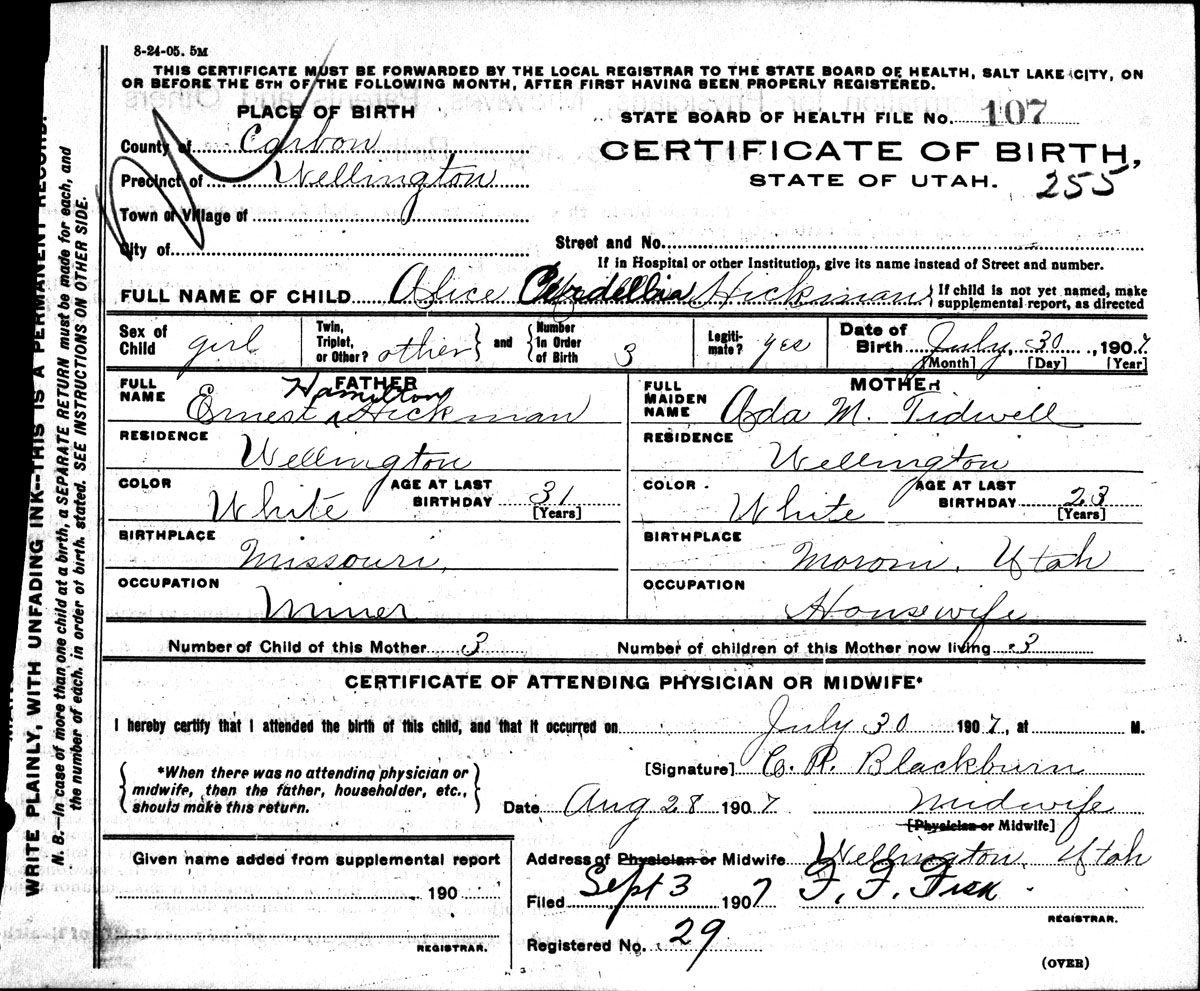 8-24-05. 5M
THIS CERTIFICATE MUST BE FORWARDED BY THE LOCAL REGISTRAR TO THE STATE BOARD OF HEALTH, SALT LAKE CITY, ON
OR BEFORE THE 5TH OF THE FOLLOWING MONTH, AFTER FIRST HAVING BEEN PROPERLY REGISTERED.
PLACE OF BIRTH
STATE BOARD OF HEALTH FILE No. 107
County of Carbon
CERTIFICATE OF BIRTH,
Precinct of Wellington
STATE OF UTAH.
255
Town or Village of
City of
Street and No.
If in Hospital or other Institution, give its name instead of Street and number.
FULL NAME OF CHILD Alice Cordellia Hickman } If child is not yet named, make supplemental report, as directed
Sex of Child girl
Twin, Triplet, or Other? other } and { Number in Order of Birth 3
Legitimate? yes
Date of Birth July, 30, 1907
[Month] [Day] [Year]
FATHER
FULL NAME Ernest Hamilton Hickman
RESIDENCE
Wellington
COLOR White AGE AT LAST BIRTHDAY 31
[Years]
BIRTHPLACE
Missouri,
OCCUPATION
Miner
MOTHER
FULL MAIDEN NAME Ada M. Tidwell
RESIDENCE
Wellington
COLOR White AGE AT LAST BIRTHDAY 23
[Years]
BIRTHPLACE
Moroni, Utah
OCCUPATION
Housewife
Number of Child of this Mother 3 Number of children of this Mother now living 3
CERTIFICATE OF ATTENDING PHYSICIAN OR MIDWIFE*
I hereby certify that I attended the birth of this child, and that it occurred on July 30 1907, at M.
{ *When there was no attending physician or midwife, then the father, householder, etc., should make this return. }
[Signature] C. R. Blackburn
Date Aug 28 1907 Midwife
[Physician or Midwife]
Given name added from supplemental report
190
REGISTRAR.
Address of Physician or Midwife Wellington, Utah
Filed Sept 3 1907 F. F. Fisk
REGISTRAR.
Registered No. 29
(OVER)
WRITE PLAINLY, WITH UNFADING INK--THIS IS A PERMANENT RECORD.
N. B.—In case of more than one child at a birth, a SEPARATE RETURN must be made for each, and
the number of each, in order of birth, stated. SEE INSTRUCTIONS ON OTHER SIDE.